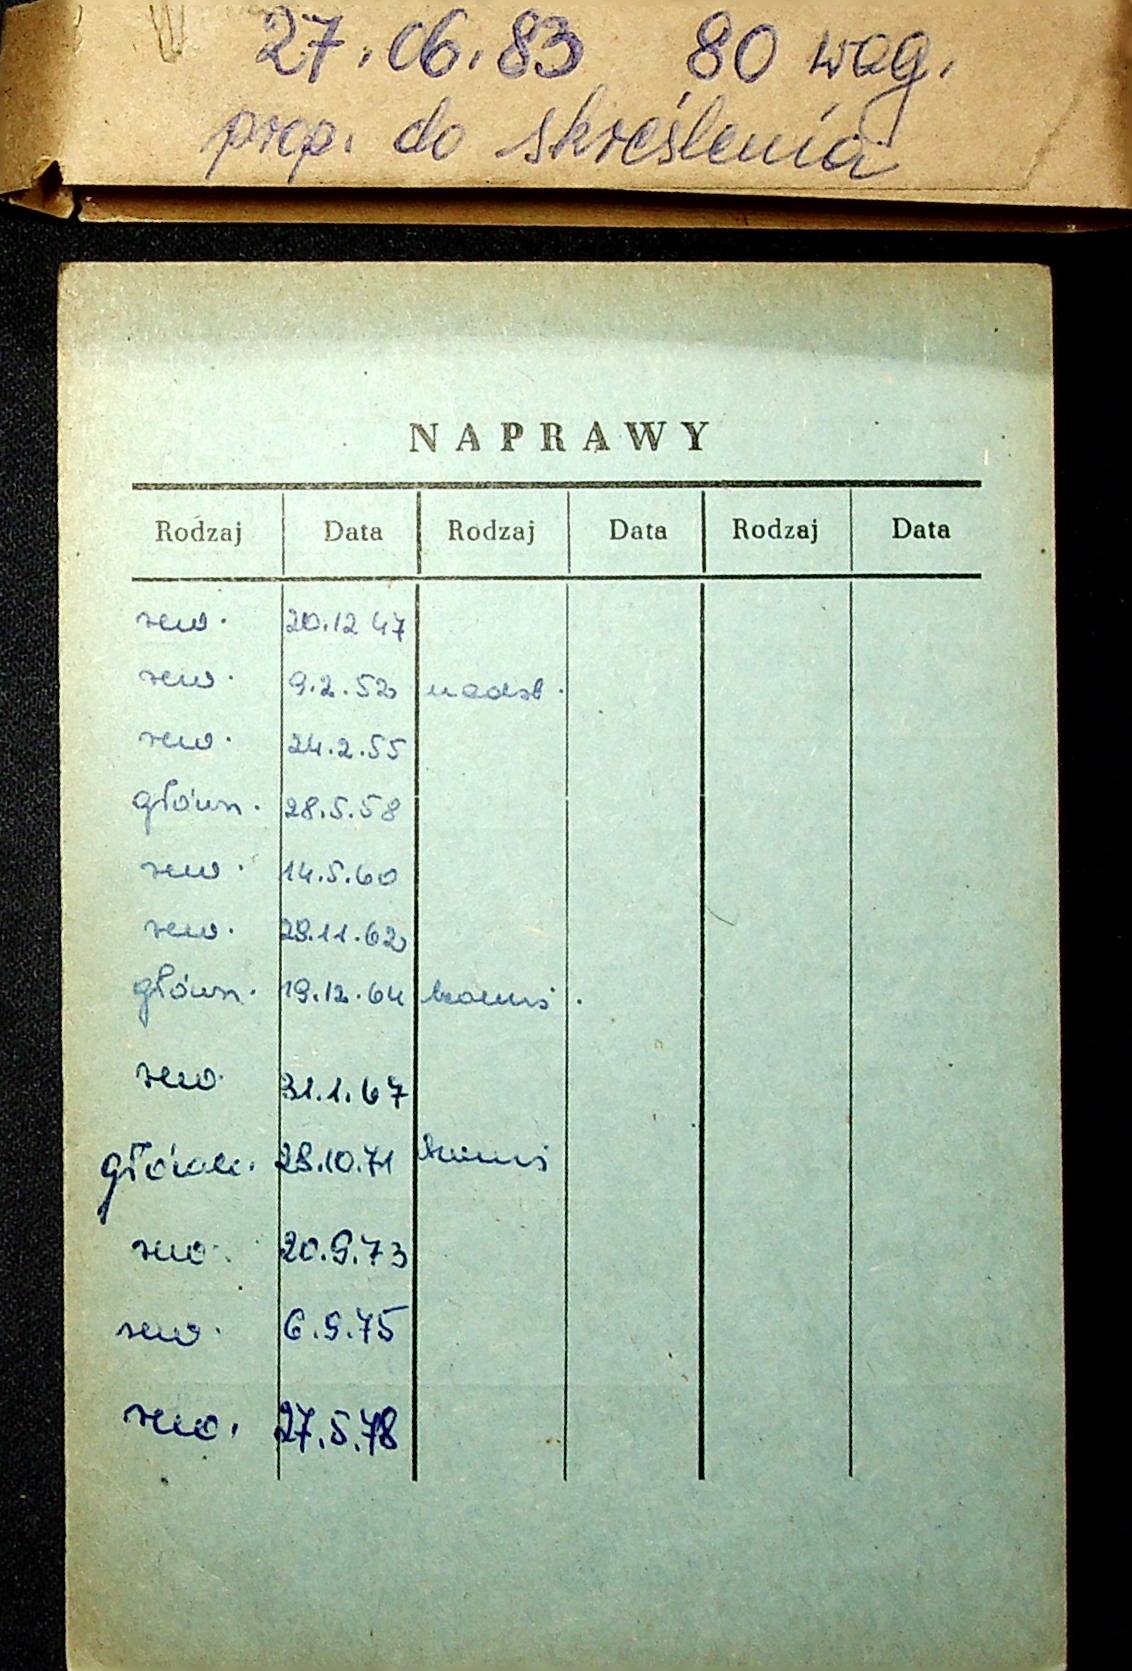 27.06.83 80 wag.
prop. do skreślenia
NAPRAWY
Rodzaj Data Rodzaj Data Rodzaj Data
rew. 20.12 47
rew. 9.2.52 nadst.
rew. 24.2.55
główn. 28.5.58
rew. 14.5.60
rew. 29.11.62
główn. 19.12.64
rew. 31.1.67
główn. 29.10.71
rew. 20.9.73
rew. 6.9.75
rew. 27.5.78